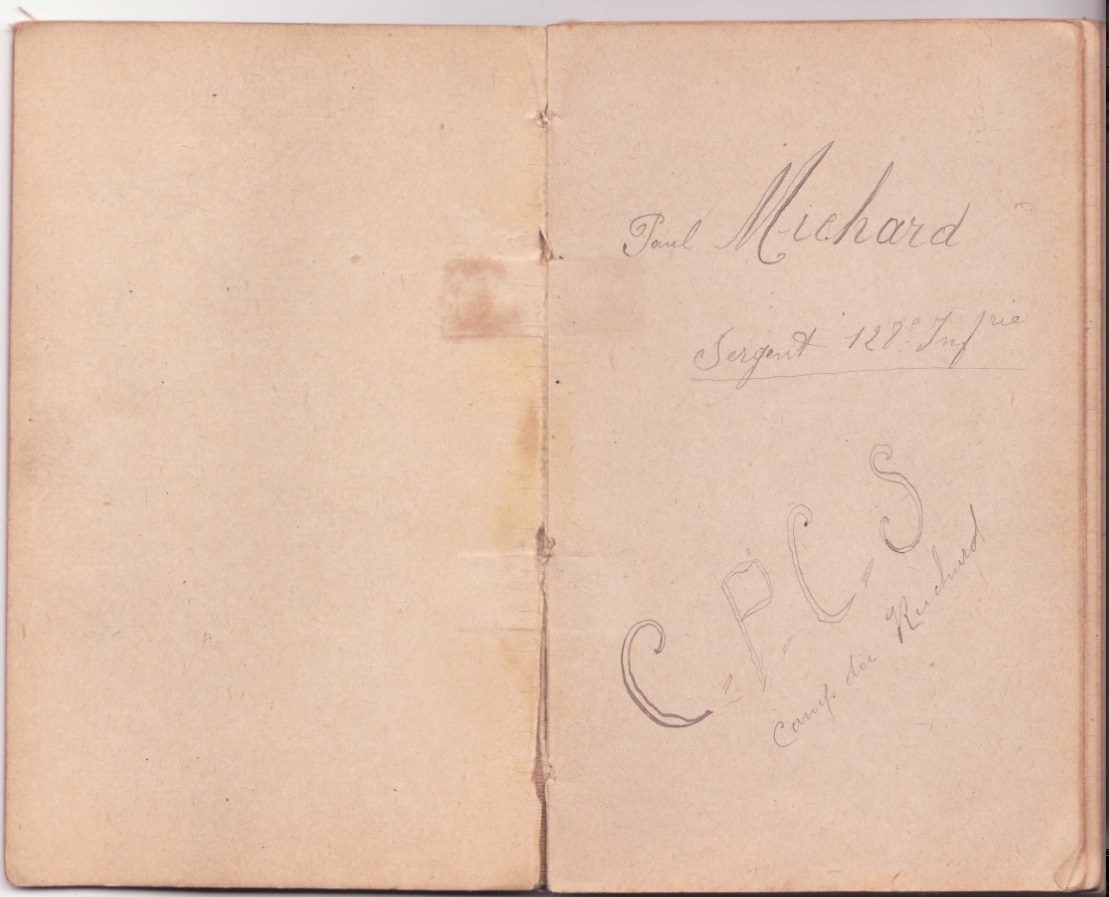 Paul Michard
Sergent 128e Infrie
C-P-C-S
Camp du Ruchard